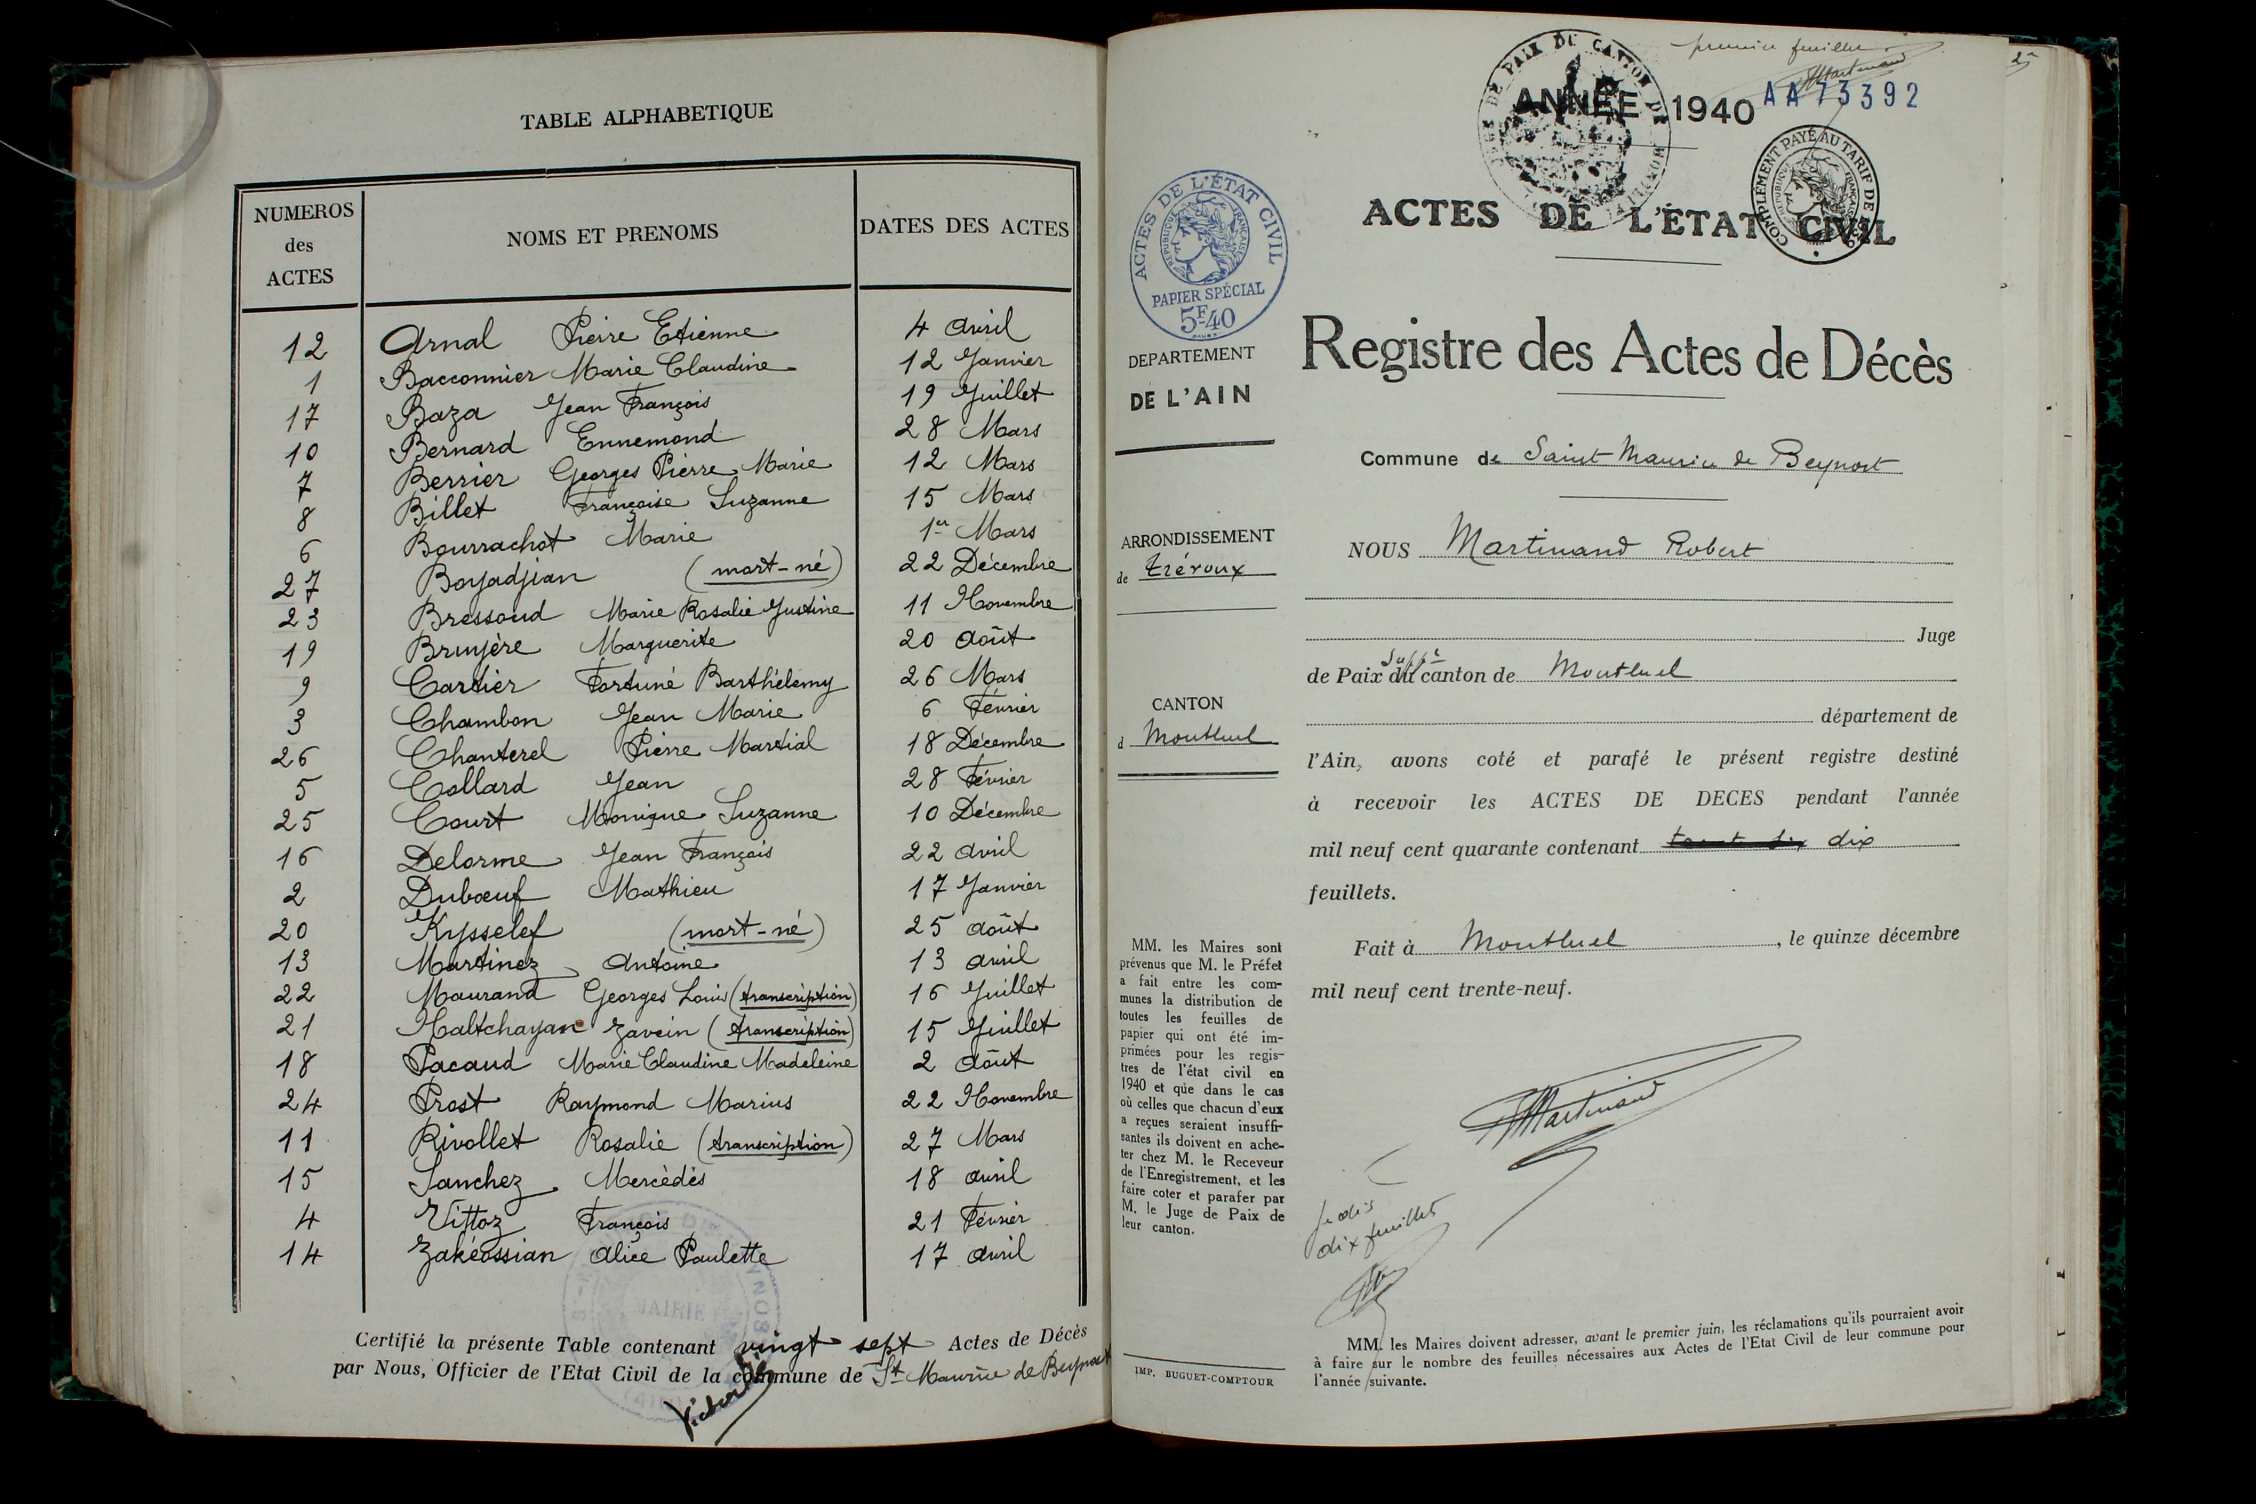 TABLE ALPHABETIQUE
NUMEROS des ACTES NOMS ET PRENOMS DATES DES ACTES
12 Arnal Pierre Etienne 4 Avril
1 Bacconnier Marie Claudine 12 Janvier
17 Baza Jean François 19 Juillet
10 Bernard Ennemond 28 Mars
7 Berrier Georges Pierre Marie 12 Mars
8 Billet Françoise Suzanne 15 Mars
6 Bourrachot Marie 1er Mars
27 Boyadjian (mort-né) 22 Décembre
23 Bressoud Marie Rosalie Justine 11 Novembre
19 Bruyère Marguerite 20 Août
9 Cartier Fortuné Barthélemy 26 Mars
3 Chambon Jean Marie 6 Février
26 Chanterel Pierre Martial 18 Décembre
5 Collard Jean 28 Février
25 Court Monique Suzanne 10 Décembre
16 Delorme Jean François 22 Avril
2 Dubœuf Mathieu 17 Janvier
20 Kysselef (mort-né) 25 Août
13 Martinez Antoine 13 Avril
22 Maurand Georges Louis (transcription) 16 Juillet
21 Naltchayan Zavein (transcription) 15 Juillet
18 Pacaud Marie Claudine Madeleine 2 Août
24 Prost Raymond Marius 22 Novembre
11 Rivollet Rosalie (transcription) 27 Mars
15 Sanchez Mercédès 18 Avril
4 Vittoz François 21 Février
14 Zakéossian Alice Paulette 17 Avril
Certifié la présente Table contenant vingt sept Actes de Décès
par Nous, Officier de l'Etat Civil de la commune de St Maurice de Beynost
MAIRIE
premier feuillet
Martinand
JUGE DE PAIX DU CANTON DE
ANNÉE 1940 AA 73392
COMPLÉMENT PAYÉ AU TARIF DE
RÉPUBLIQUE FRANÇAISE
ACTES DE L'ÉTAT CIVIL
ACTES DE L'ÉTAT CIVIL
RÉPUBLIQUE FRANÇAISE
PAPIER SPÉCIAL
5F40
DEPARTEMENT
DE L'AIN
ARRONDISSEMENT
de Trévoux
CANTON
d Montluel
MM. les Maires sont
prévenus que M. le Préfet
a fait entre les com-
munes la distribution de
toutes les feuilles de
papier qui ont été im-
primées pour les regis-
tres de l'état civil en
1940 et que dans le cas
où celles que chacun d'eux
a reçues seraient insuffi-
santes ils doivent en ache-
ter chez M. le Receveur
de l'Enregistrement, et les
faire coter et parafer par
M. le Juge de Paix de
leur canton.
IMP. BUGUET-COMPTOUR
Registre des Actes de Décès
Commune de Saint Maurice de Beynost
NOUS Martinand Robert
Juge
suppt
de Paix du canton de Montluel
département de
l'Ain, avons coté et parafé le présent registre destiné
à recevoir les ACTES DE DECES pendant l'année
mil neuf cent quarante contenant dix
feuillets.
Fait à Montluel, le quinze décembre
mil neuf cent trente-neuf.
Martinand
Je dis
dix feuillets
MM. les Maires doivent adresser, avant le premier juin, les réclamations qu'ils pourraient avoir
à faire sur le nombre des feuilles nécessaires aux Actes de l'Etat Civil de leur commune pour
l'année suivante.